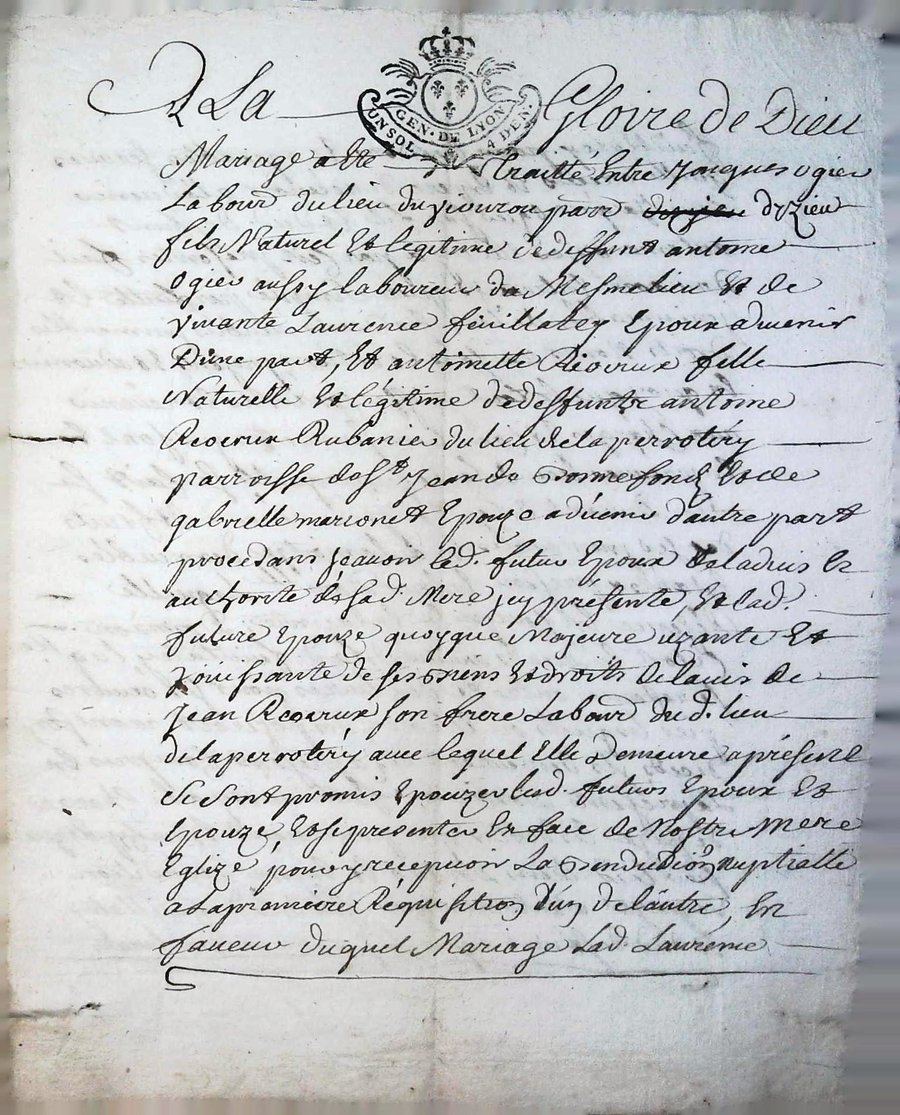 A La Gloire de Dieu
GEN. DE LYON
UN SOL 4 DEN.
Mariage a ete traitté Entre Jacques ogier
Labour du lieu du parr dizieu
fils Naturel Et legitime de deffunt antoine
Ogier aussy laboureur du Mesme lieu Et de
vivante Laurence féuillatey Epoux advenir
D'une part, Et antoinette Reocreux fille
Naturelle Et légitime de deffunts antoine
Reocreux Rubanier du lieu de la perrotiéry
parroisse de St Jean de Bonnefond Et de
gabrielle marionet Epouze advenir d'autre part
procedans scavoir led. futur Epoux de ladvis Et
authorité de sad. Mere jcy présente, Et lad.
future Epouze quoyque Majeure uzante Et
jouissante de ses biens Et droits de lavis de
Jean Reocreux son frere Labour dud. lieu
de la perrotiéry avec lequel Elle Demeure a présent
se sont promis Epouzer lesd. futurs Epoux Et
Epouze, Et se presenter En face de Nostre Mere
Eglize, pour y recepvoir La Benediction nuptialle
a la premiere Réquisition d'un de l'autre, En
faveur duquel Mariage Lad. Laurence